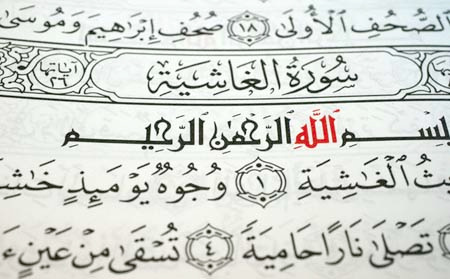 الصُّحُفِ ٱلْأُولَىٰ ١٨ صُحُفِ إِبْرَاهِيمَ وَمُوسَىٰ
سُورَةُ الْغَاشِيَةِ آيَاتُهَا ٢٦
بِسْمِ ٱللَّهِ الرَّحْمَٰنِ الرَّحِيمِ
ٱلْغَاشِيَةِ ١ وُجُوهٌ يَوْمَئِذٍ
تَصْلَىٰ نَارًا حَامِيَةً ٤ تُسْقَىٰ مِنْ عَيْنٍ